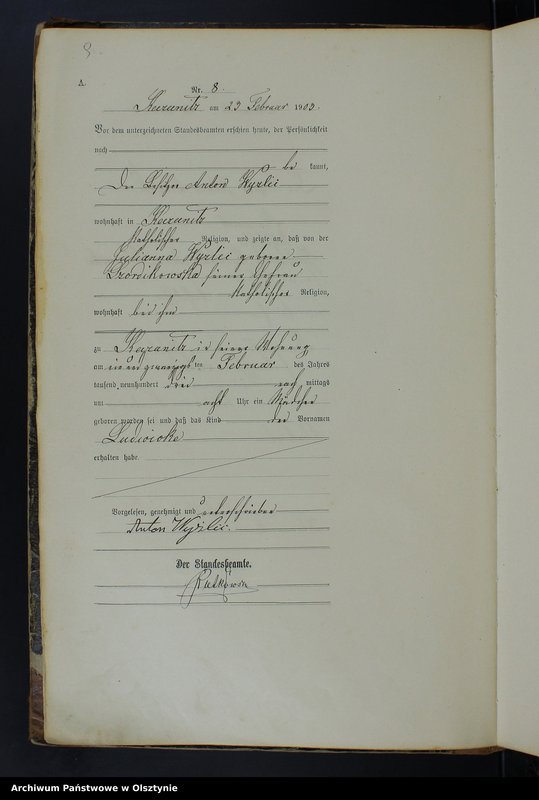 A.
Nr. 8.
Kazanitz am 23 Februar 1903.
Vor dem unterzeichneten Standesbeamten erschien heute, der Persönlichkeit
nach
be kannt,
Der Besitzer Anton Wyzlic
wohnhaft in Kazanitz
katholischer Religion, und zeigte an, daß von der
Julianna Wyzlic geborene
seiner Ehefrau
katholischer Religion,
wohnhaft bei ihm
zu Kazanitz in seiner Wohnung
am ten Februar des Jahres
tausend neunhundert drei nach mittags
um acht Uhr ein Mädchen
geboren worden sei und daß das Kind den Vornamen
erhalten habe.
Vorgelesen, genehmigt und unterschrieben
Anton Wyzlic.
Der Standesbeamte.
Archiwum Państwowe w Olsztynie